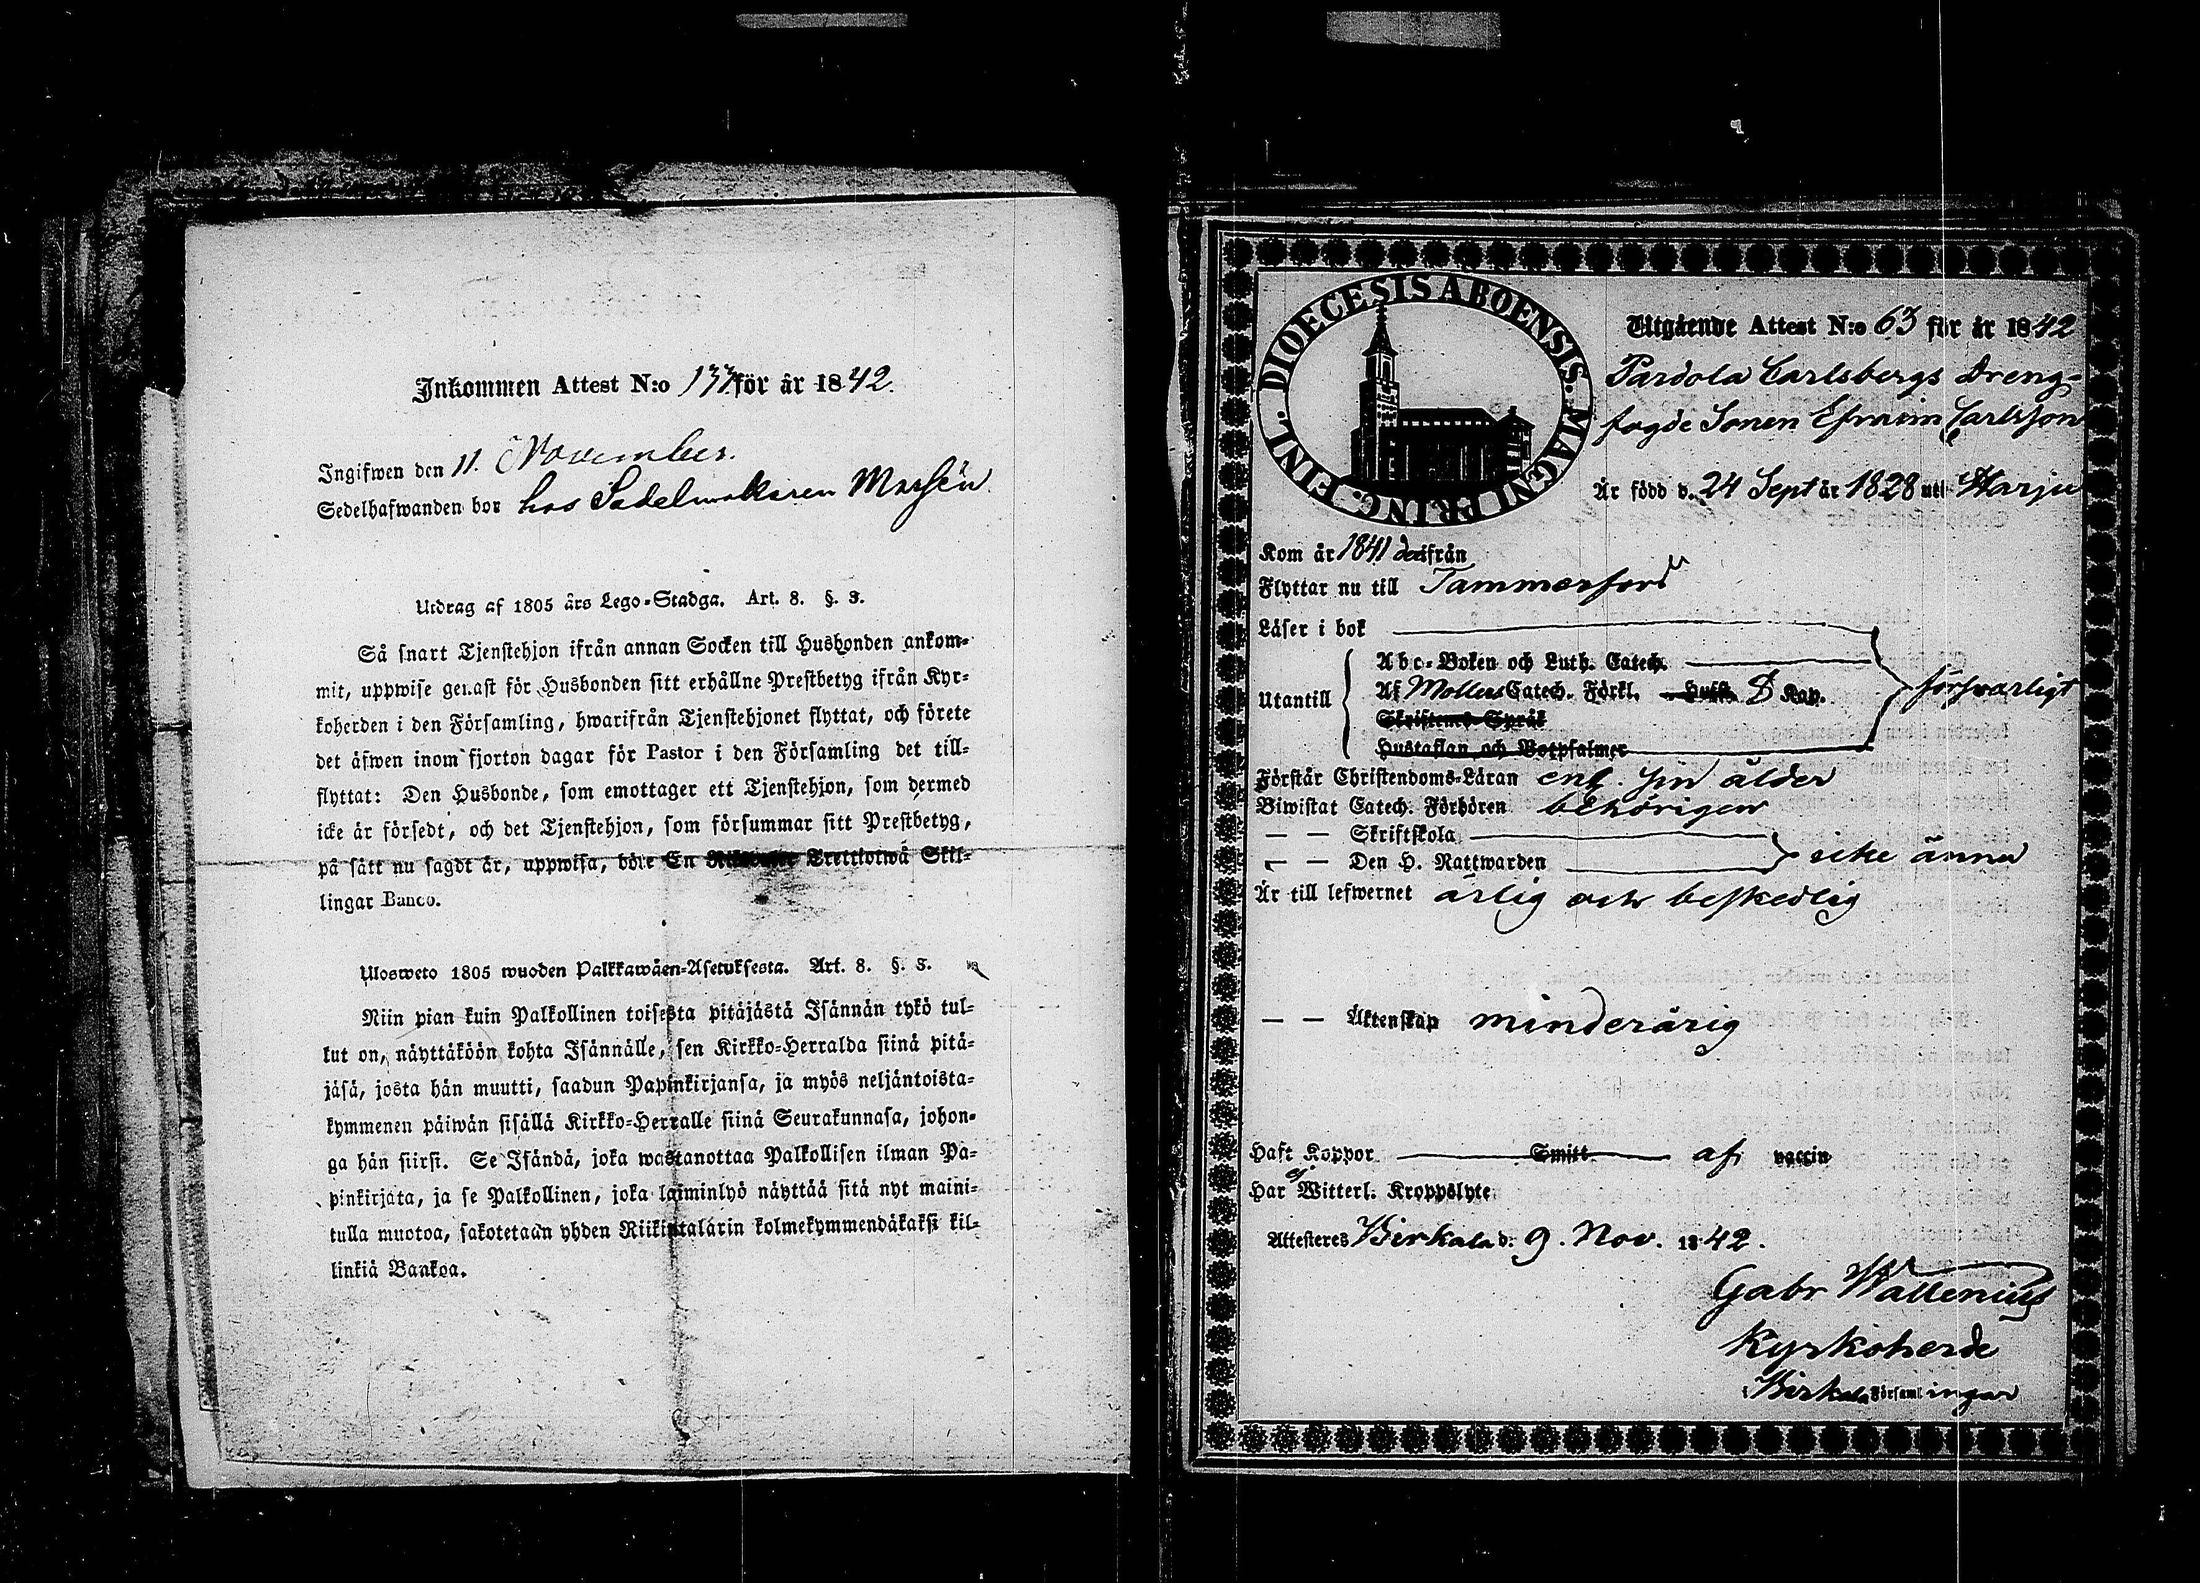 Inkommen Attest N:o 133 för år 1842.
Ingifwen den 11. November.
Sedelhafwanden bor hos Sadelmakaren
Utdrag af 1805 års Lego-Stadga. Art. 8. §. 3.
Så snart Tjenstehjon ifrån annan Socken till Husbonden ankom-
mit, uppwise genast för Husbonden sitt erhållne Prestbetyg ifrån Kyr-
koherden i den Församling, hwarifrån Tjenstehjonet flyttat, och förete
det äfwen inom fjorton dagar för Pastor i den Församling det till-
flyttat: Den Husbonde, som emottager ett Tjenstehjon, som dermed
icke är försedt, och det Tjenstehjon, som försummar sitt Prestbetyg,
på sätt nu sagdt är, uppwisa, böte En Trettiotwå Skil-
lingar Banco.
Ulosweto 1805 wuoden Palkkawäen-Asetuksesta. Art. 8. §. 3.
Niin pian kuin Palkollinen toisesta pitäjästä Isännän tykö tul-
lut on, näyttäköön kohta Isännälle, sen Kirkko-Herralda siinä pitä-
jäsä, josta hän muutti, saadun Papinkirjansa, ja myös neljäntoista-
kymmenen päiwän sisällä Kirkko-Herralle siinä Seurakunnasa, johon-
ga hän siirsi. Se Isändä, joka wastanottaa Palkollisen ilman Pa-
pinkirjata, ja se Palkollinen, joka laiminlyö näyttää sitä nyt maini-
tulla muotoa, sakotetaan yhden Riikintalarin kolmekymmendäkaksi kil-
linkiä Bankoa.
FINL. DIOECESIS ABOENSIS. MAGNI PRINC.
Utgående Attest N:o 63 för år 1842
Pardola Carlsbergs Dreng-
fogde Sonen Efraim Carlsson
Är född d. 24 Sept år 1828 uti Harju
Kom år 1841 derifrån
Flyttar nu till Tammerfors
Läser i bok
Utantill
Abc-Boken och Luth. Catech.
Af Möllers Catech. Förkl. Hufst. 8 Kap. försvarligt
Skriftenes Språk
Hustaflan och Botpsalmer
Förstår Christendoms-Läran enl. sin ålder
Biwistat Catech. Förhören behörigen
— — Skriftskola
— — Den H. Nattwarden icke ännu
Är till lefwernet ärlig och beskedlig
— — Äktenskap minderårig
Haft Koppor Smitt af vaccin
Har ej Witterl. Kroppslyte
Attesteres Birkala d. 9. Nov. 1842.
Gabr Wallenius
Kyrkoherde
i Birkala Församlingar